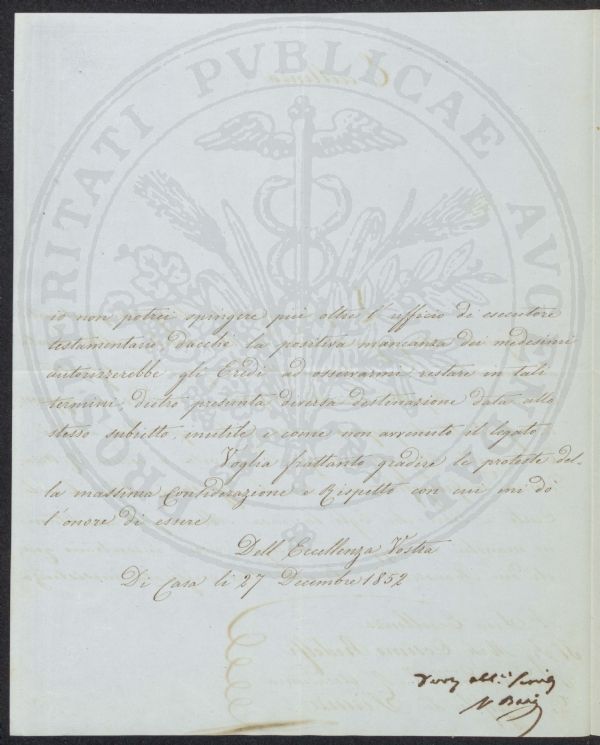 PROSPERITATI PVBLICAE AVGENDAE
io non potrei spingere più oltre l'ufficio di esecutore
testamentario, dacchè la positiva mancanza dei medesimi
autorizzerebbe gli Eredi ad osservarmi restare in tali
termini, dietro presunta diversa destinazione data allo
stesso subritto, inutile e come non avvenuto il legato
Voglia frattanto gradire le proteste del-
la massima Considerazione e Rispetto con cui mi dò
l'onore di essere
Dell'Eccellenza Vostra
Di Casa li 27 Decembre 1852